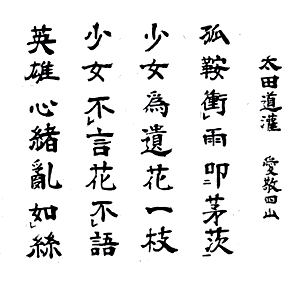 太田道灌　愛敬四山
孤鞍衝レ雨叩二茅茨一
少女為遺花一枝
少女不レ言花不レ語
英雄心緒乱如レ絲